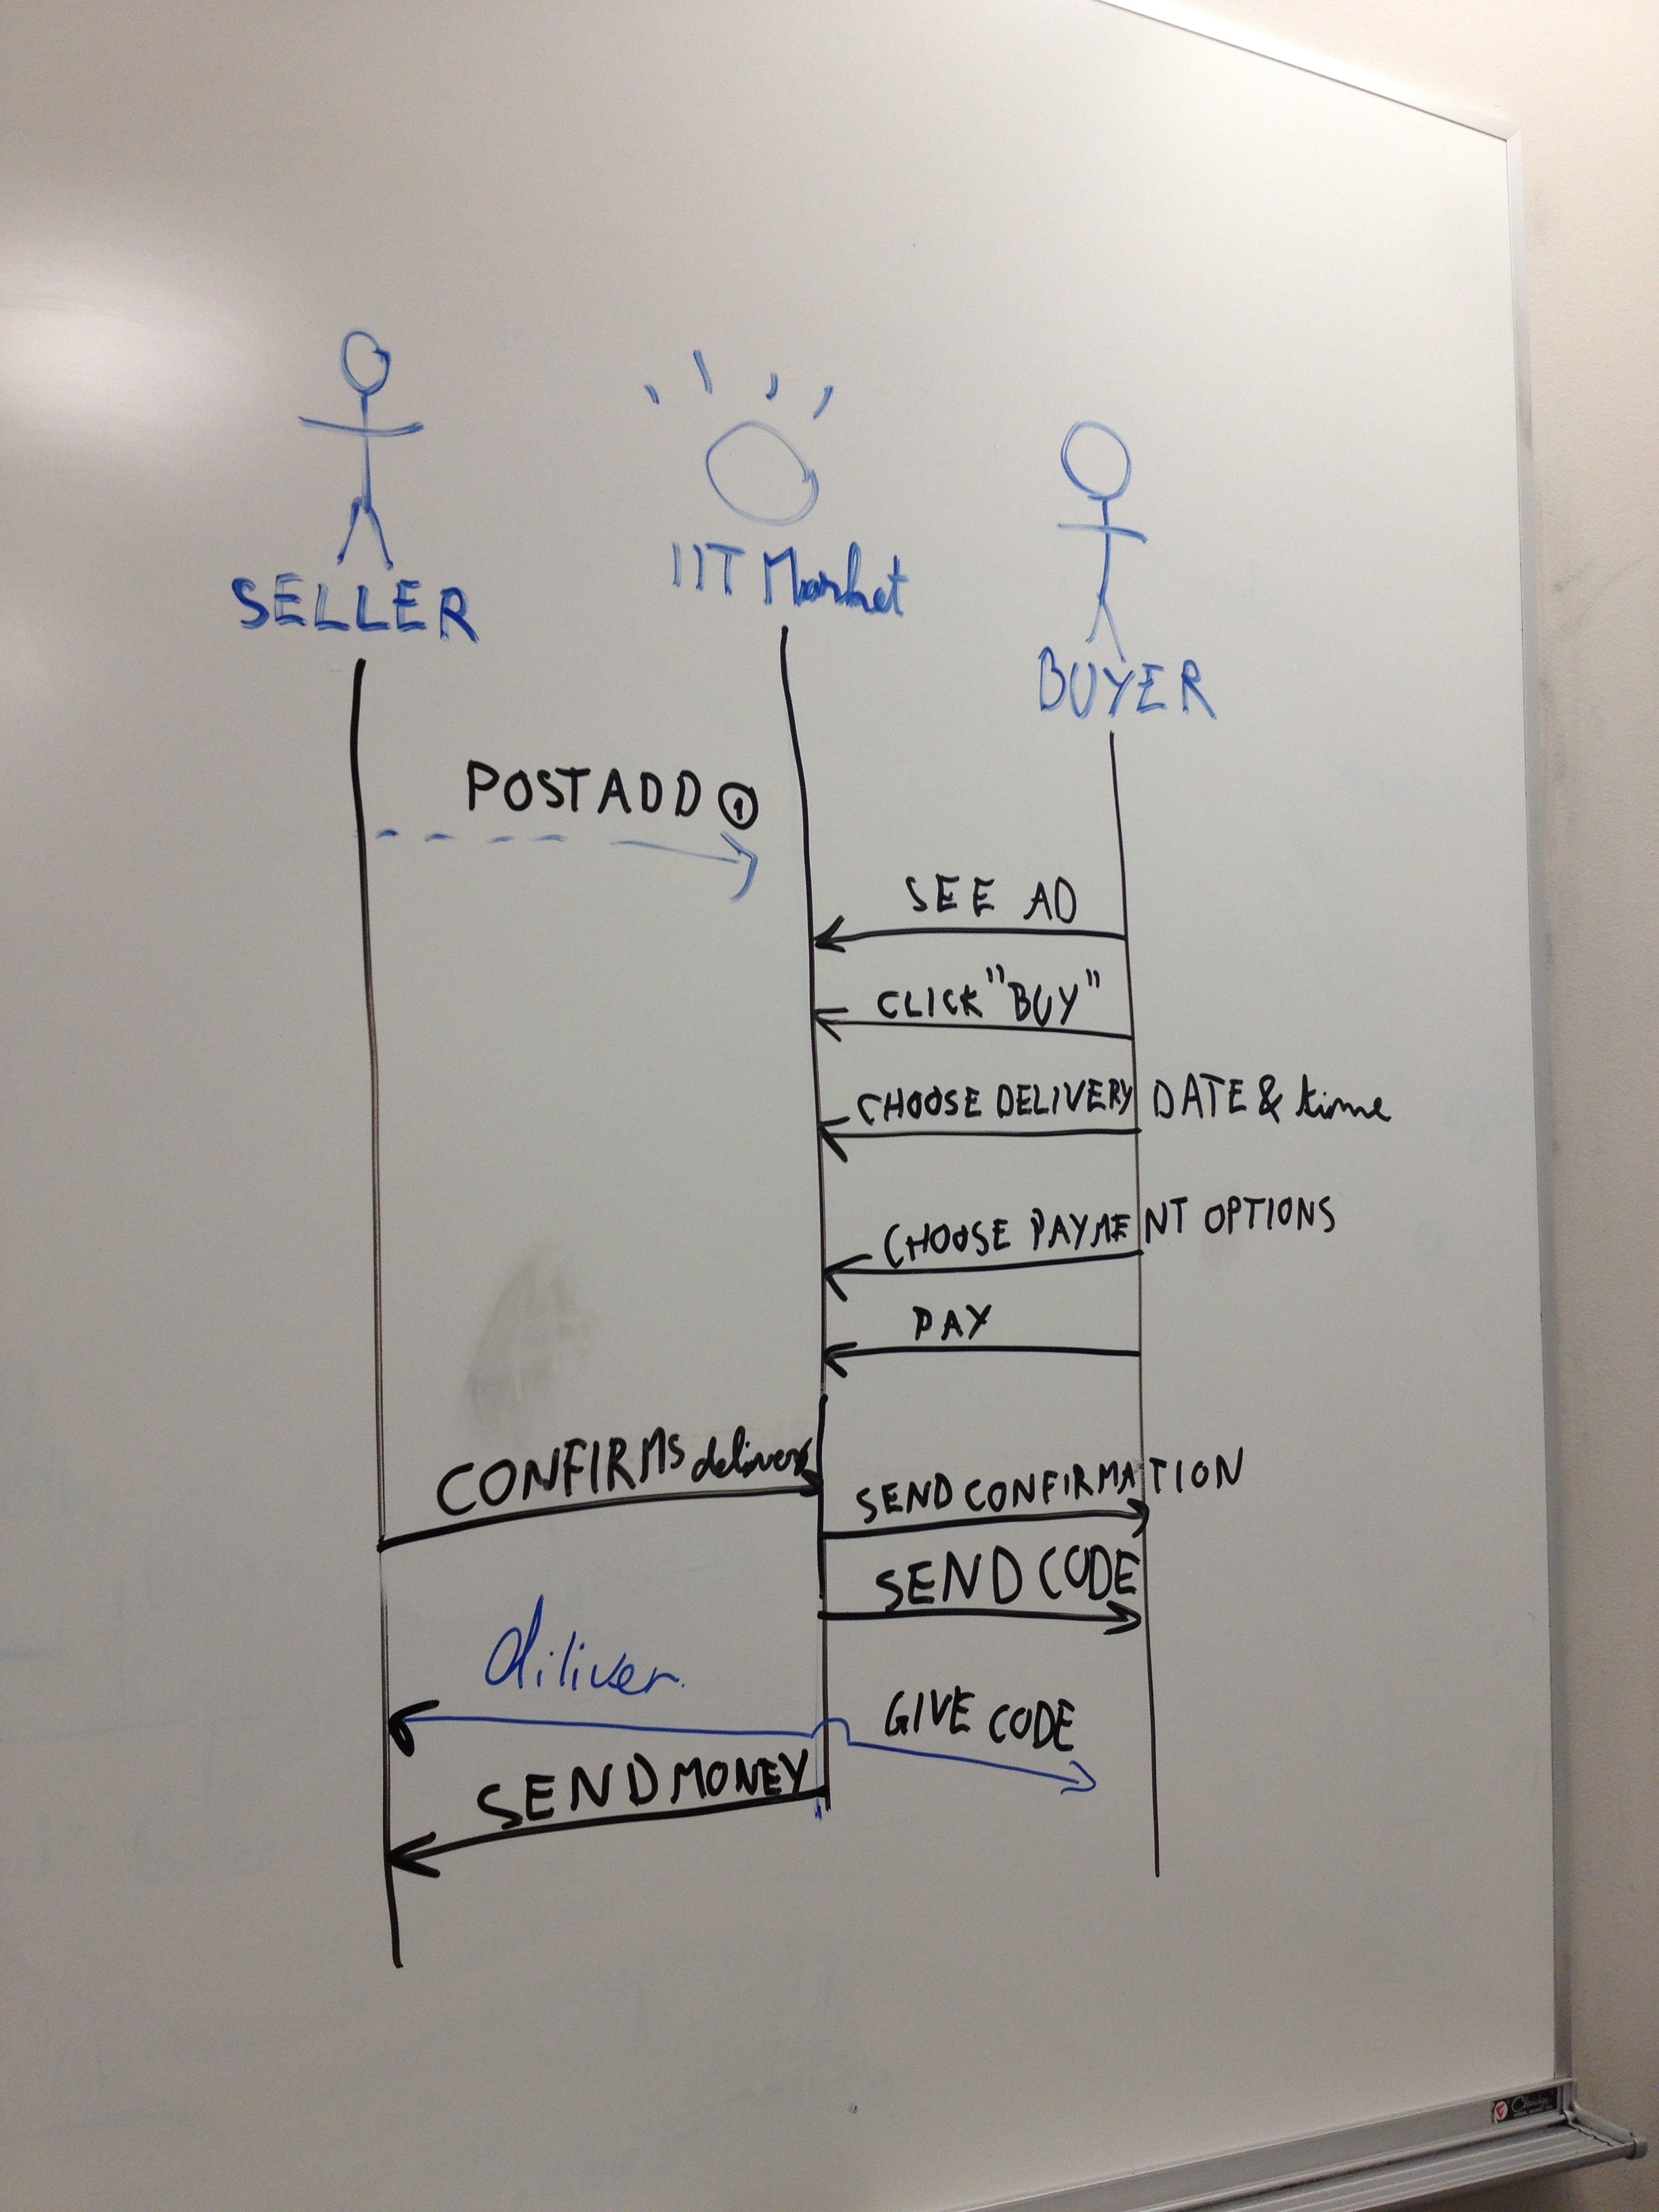 SELLER
IIT Market
BUYER
POST ADD 1
SEE AD
CLICK "BUY"
CHOOSE DELIVERY DATE & time
CHOOSE PAYMENT OPTIONS
PAY
CONFIRMS delivery
SEND CONFIRMATION
SEND CODE
diliver
GIVE CODE
SEND MONEY